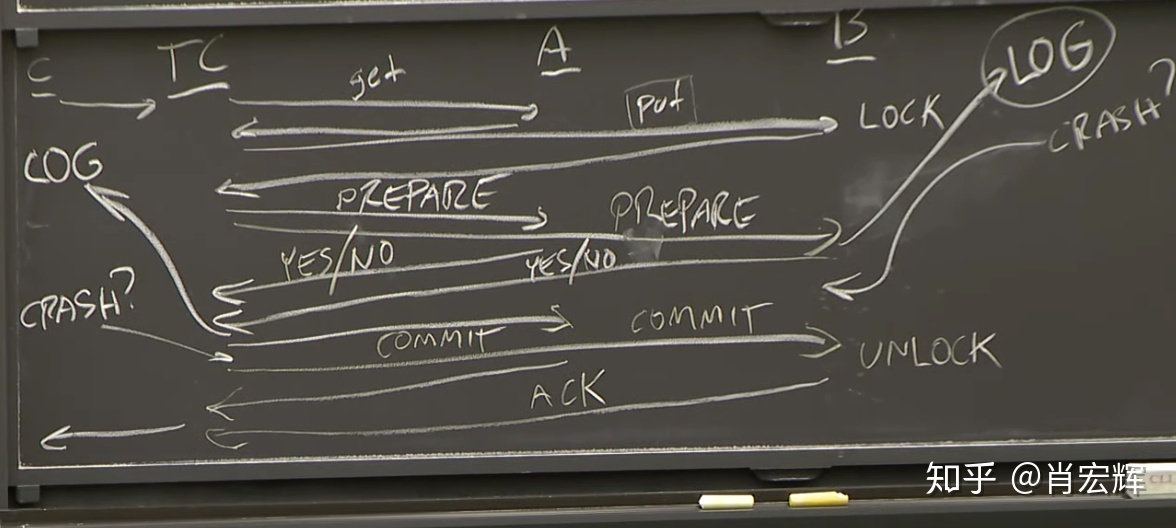 C TC A B LOG
get
put
LOCK CRASH?
LOG
PREPARE PREPARE
YES/NO YES/NO
CRASH?
COMMIT COMMIT
UNLOCK
ACK
知乎 @肖宏辉